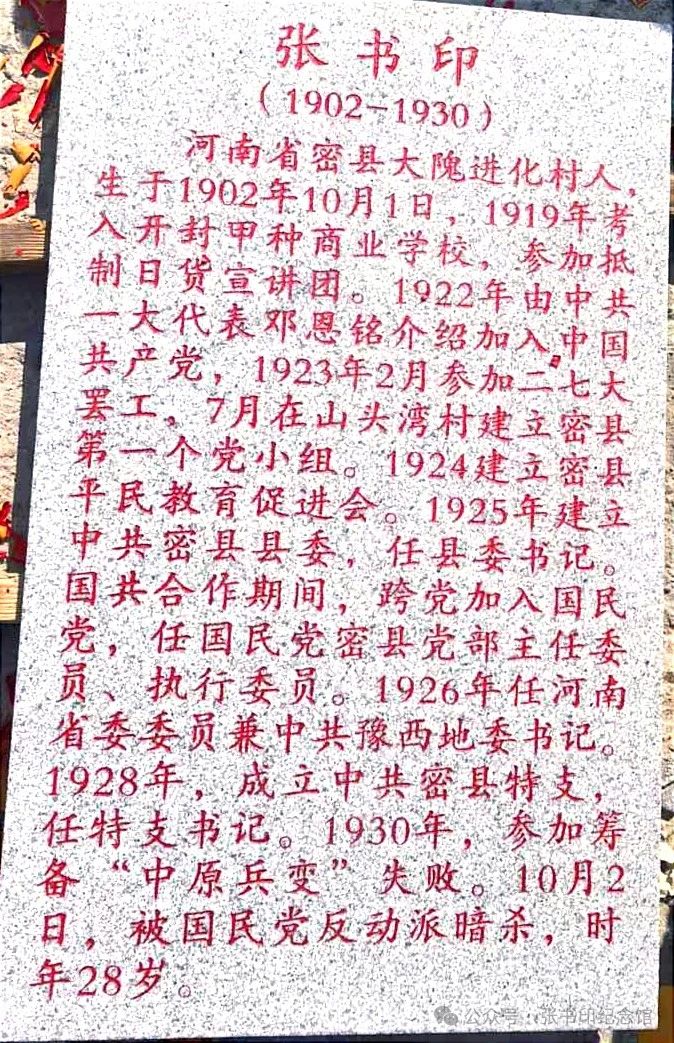 张书印
（1902-1930）
河南省密县大隗进化村人，
生于1902年10月1日，1919年考
入开封甲种商业学校，参加抵
制日货宣讲团。1922年由中共
一大代表邓恩铭介绍加入中国
共产党，1923年2月参加二七大
罢工，7月在山头湾村建立密县
第一个党小组。1924建立密县
平民教育促进会。1925年建立
中共密县县委，任县委书记。
国共合作期间，跨党加入国民
党，任国民党密县党部主任委
员、执行委员。1926年任河南
省委委员兼中共豫西地委书记。
1928年，成立中共密县特支，
任特支书记。1930年，参加筹
备“中原兵变”失败。10月2
日，被国民党反动派暗杀，时
年28岁。
公众号·张书印纪念馆